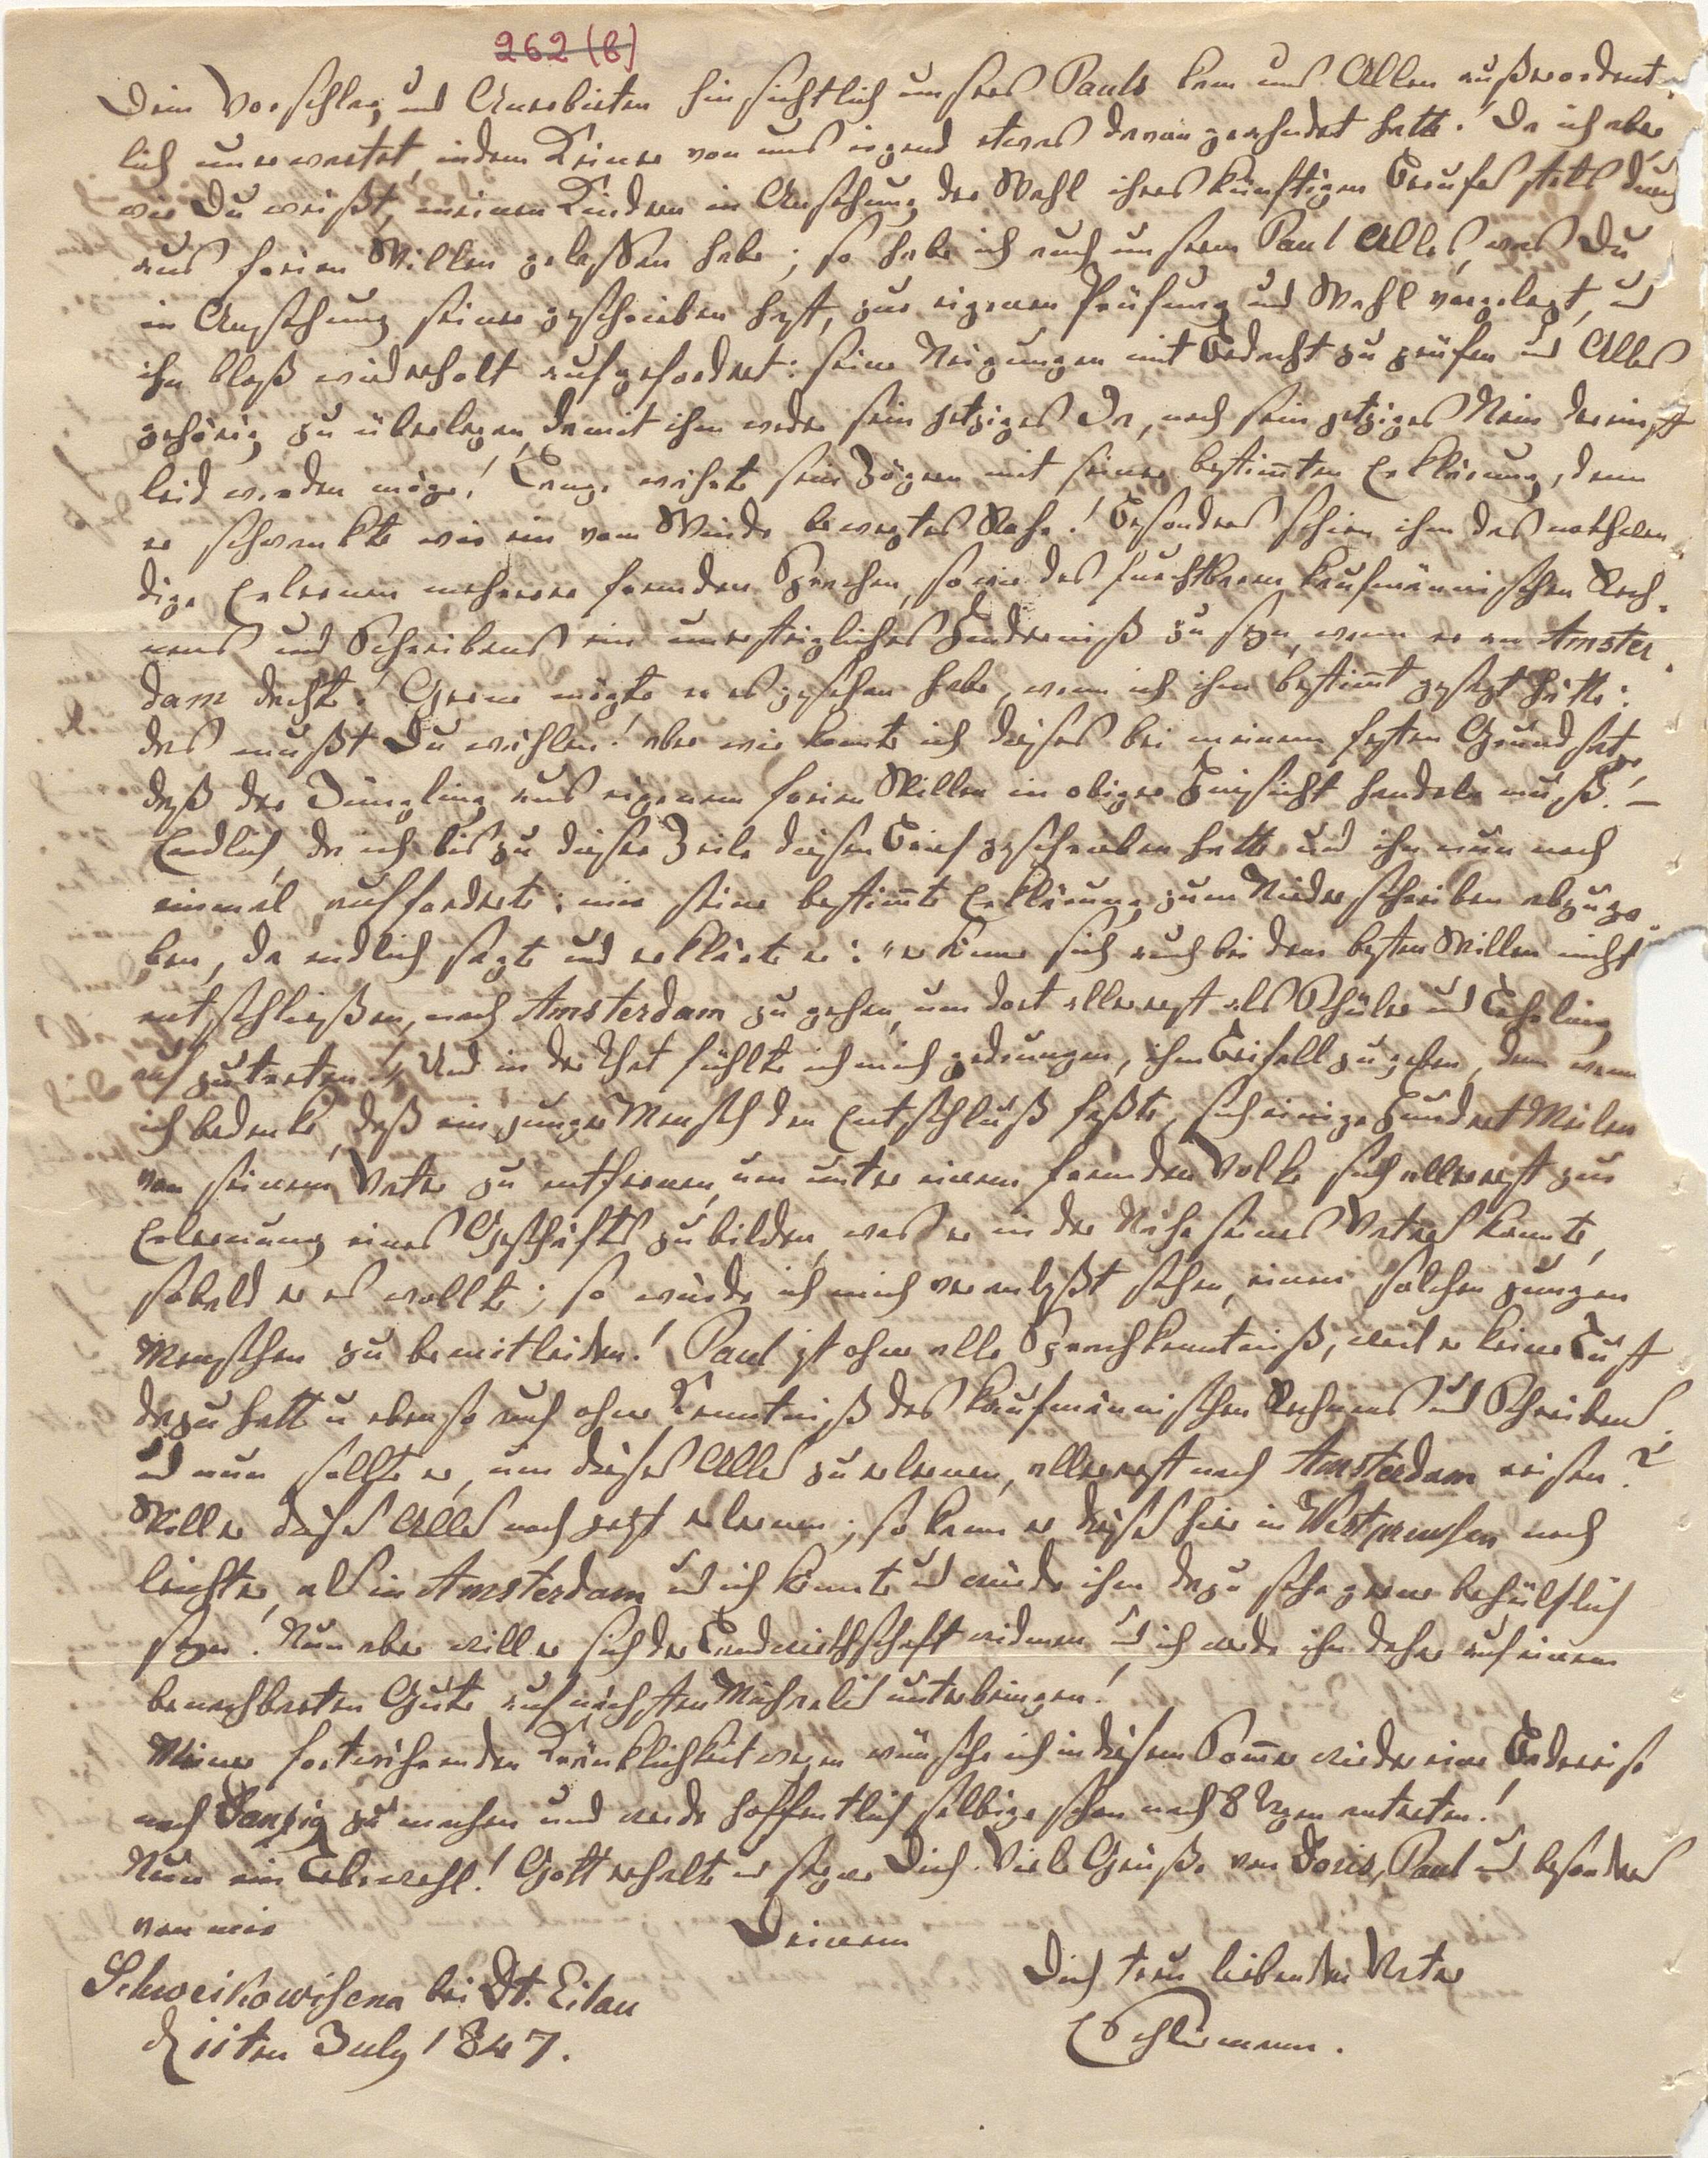 262 (b)
Dein Vorschlag und Anerbieten hinsichtlich unseres Pauls kam uns Allen außerordent-
lich unerwartet, indem Keiner von uns irgend etwas davon geahndet hatte! Da ich aber,
wie Du weißt, meinen Kindern in Ansehung der Wahl ihres künftigen Berufes stets
aus freien Willen gelassen habe; so habe ich auch unserm Paul Alles, was Du
in Ansehung seiner geschrieben hast, zur eigenen Prüfung und Wahl vorgelegt, und
ihn bloß wiederholt aufgefordert: seine Neigungen mit Bedacht zu prüfen und Alles
gehörig zu überlegen, damit ihm weder sein jetziges Ja, noch sein jetziges Nein dereinst
leid werden möge! Lange währte sein Zögern mit seiner bestimten Erklärung, denn
er schwankte wie ein vom Winde bewegtes Rohr! Besonders schien ihm das nothwen-
dige Erlernen mehrerer fremden Sprachen, so wie des furchtbaren kaufmännischen Rech-
nens und Schreibens ein unersteigliches Hinderniß zu seyn, wenn er an Amster-
dam dachte! Gerne mögte er es gesehen habe, wenn ich ihm bestimt gesagt hätte:
das mußt Du wählen! aber wie konnte ich dieses bei meinem festen Grundsatze,
daß der Jüngling aus eigenem freien Willen in obiger Hinsicht handeln muß! –
Endlich, da ich bis zu dieser Zeile diesen Brief geschrieben hatte und ihn nun noch
einmal aufforderte: mir seine bestimte Erklärung zum Niederschreiben abzuge-
ben, da endlich sagte und erklärte er: "er könne sich auch bei dem besten Willen nicht
entschließen, nach Amsterdam zu gehen, um dort allererst als Schüler und Lehrling
aufzutreten!" Und in der That fühlte ich mich gedrungen, ihm Beifall zu geben, denn wenn
ich bedenke, daß ein junger Mensch den Entschluß faßte, sich einige Hundert Meilen
von seinem Vater zu entfernen, um unter einem fremden Volke sich allererst zur
Erlernung eines Geschäfts zu bilden, was er in der Nähe seines Vaters konnte,
sobald er es wollte; so würde ich mich veranlaßt sehen, einen solchen jungen
Menschen zu bemitleiden! Paul ist ohne alle Sprachkenntniß, weil er keine Lust
dazu hatt u ebenso auch ohne Kenntniß des kaufmännischen Rechnens und Schreibens
und nun sollte er, um dieses Alles zu erlernen, allererst nach Amsterdam reisen?
Will er dieses Alles noch jetzt erlernen; so kann er dieses hier in Westpreussen noch
leichter, als in Amsterdam und ich könnte und würde ihm dazu sehr gerne behülflich
seyn! Nun aber will er sich der Landwirthschaft widmen und ich werde ihn daher auf einem
benachbarten Gute auf nächsten Michaelis unterbringen!
Meiner fortwährenden Kränklichkeit wegen wünsche ich in diesem Somer wieder eine Badereise
nach Danzig zu machen und werde hoffentlich selbige schon nach 8 Tagen antreten!
Nun ein Lebewohl! Gott erhalte u segne Dich. Viele Grüße von Doris, Paul und besonders
von mir
Deinem
Dich treu liebenden Vater
Schliemann.
bei Dt. Eilau
d 11ten July 1847.